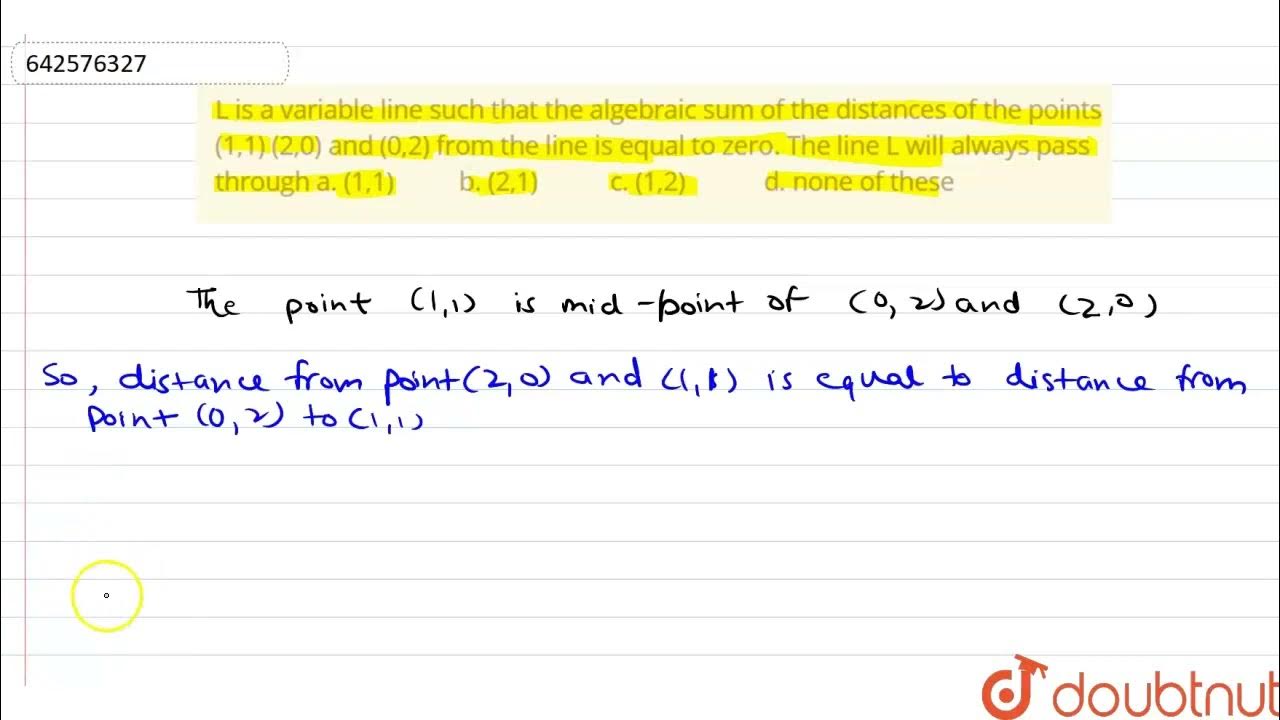 642576327
L is a variable line such that the algebraic sum of the distances of the points
(1,1) (2,0) and (0,2) from the line is equal to zero. The line L will always pass
through a. (1,1) b. (2,1) c. (1,2) d. none of these
The point (1,1) is mid-point of (0,2) and (2,0)
So, distance from point (2,0) and (1,1) is equal to distance from
point (0,2) to (1,1)
doubtnut